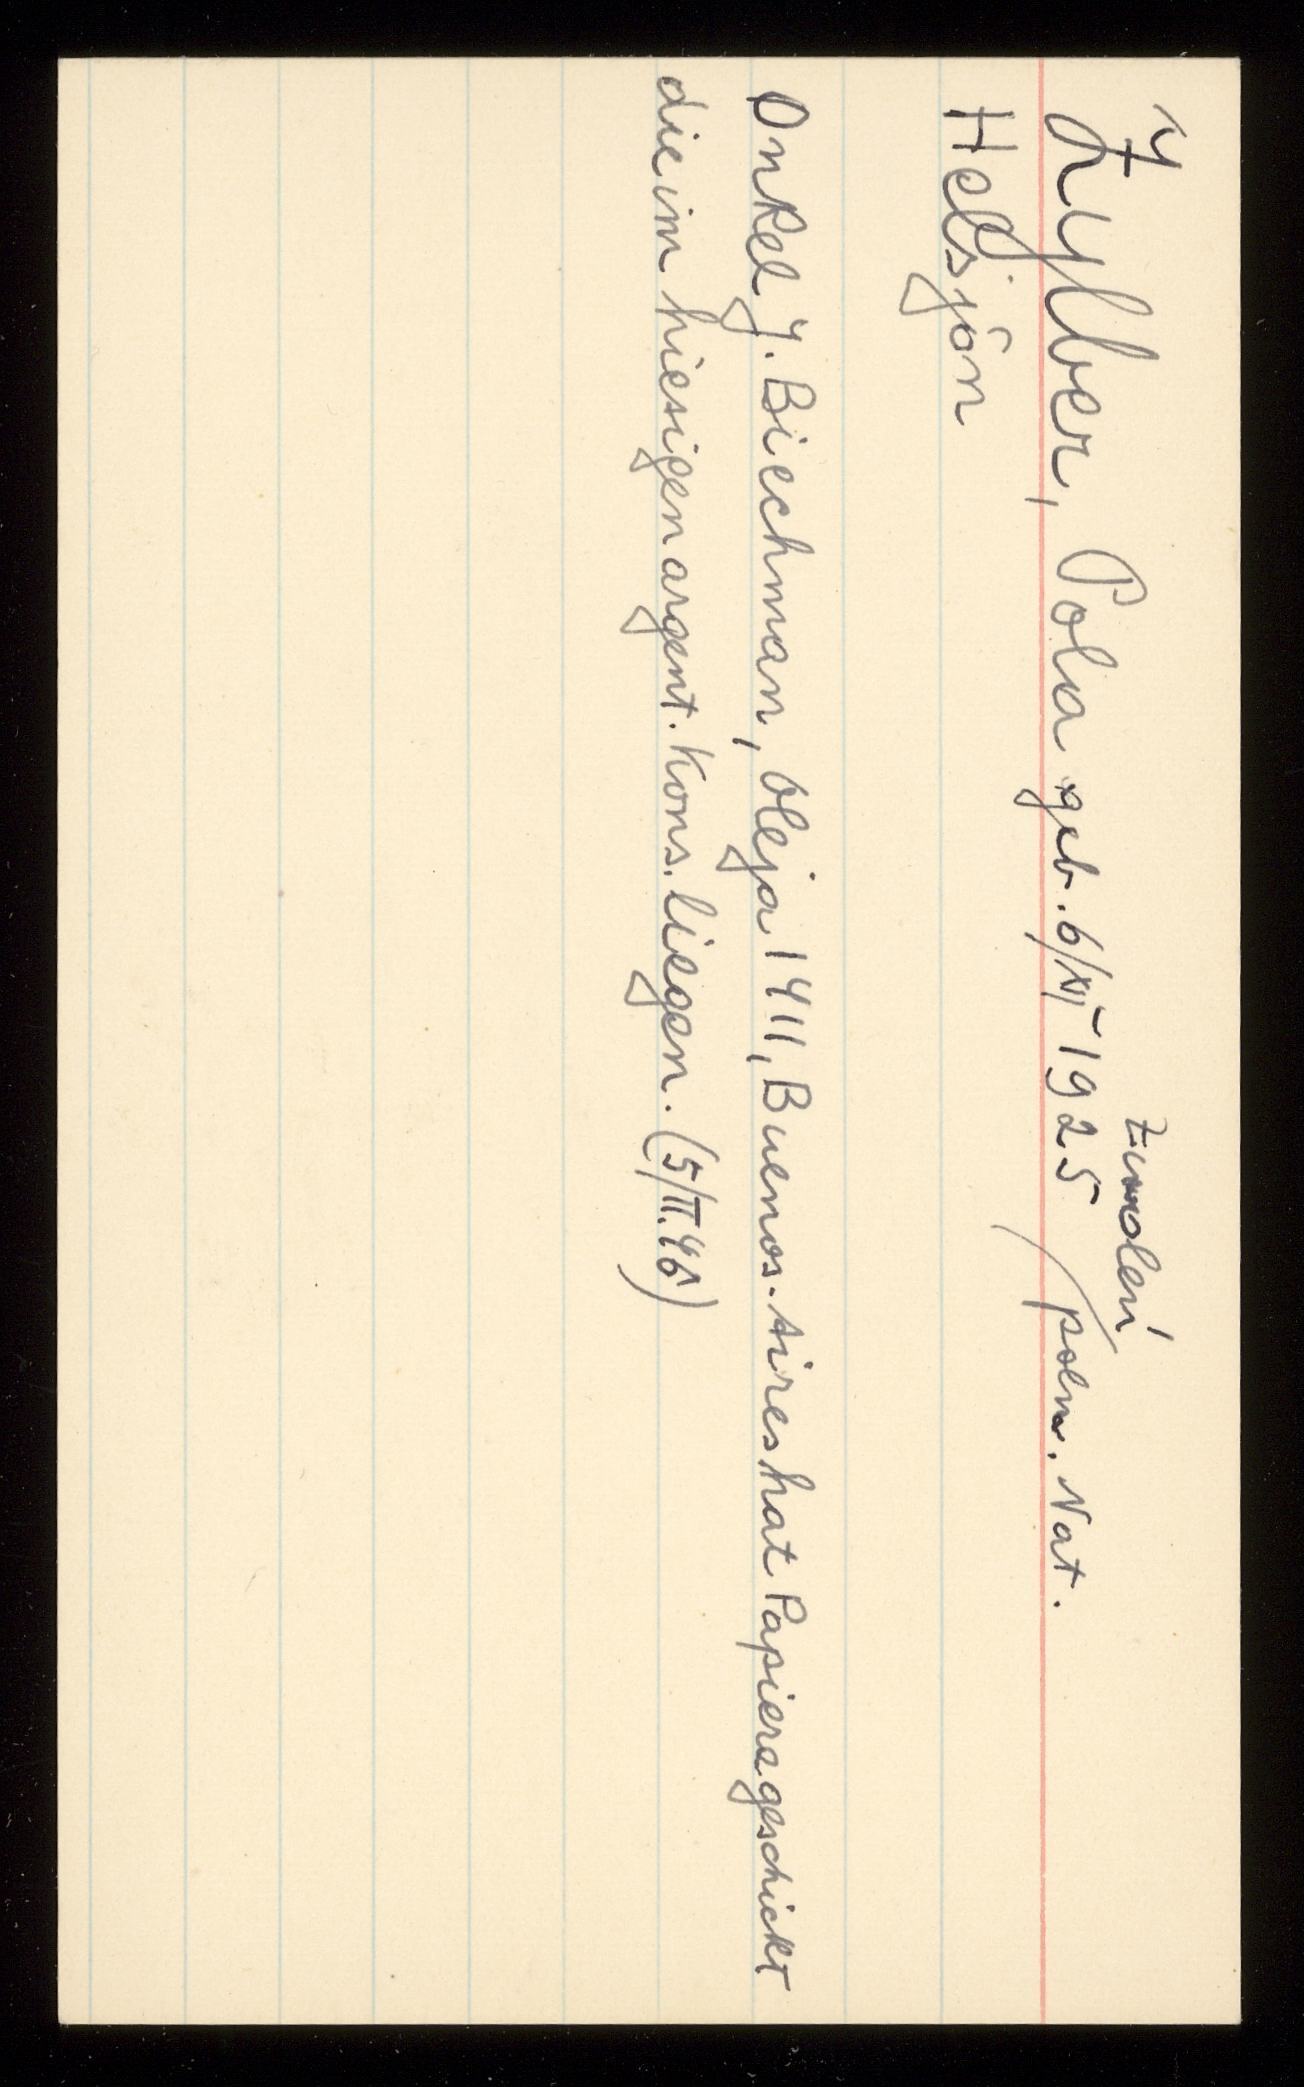 Zylber, Pola geb. 6/XII 1925 poln. Nat.
Helsjön
Onkel J. Biechman, Olleja 1411, Buenos-Aires hat Papiere geschickt
die im hiesigen argent. Kons. liegen. (5/II.46)